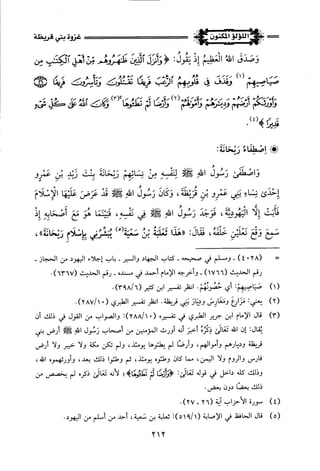 اللؤلؤ المكنون
غزوة بني قريظة
وَصَدَقَ اللهُ العَظِيمُ إِذْ يَقُولُ: ﴿وَأَنزَلَ الَّذِينَ ظَاهَرُوهُم مِّنْ أَهْلِ الْكِتَابِ مِن
صَيَاصِيهِمْ (١) وَقَذَفَ فِي قُلُوبِهِمُ الرُّعْبَ فَرِيقًا تَقْتُلُونَ وَتَأْسِرُونَ فَرِيقًا
وَأَوْرَثَكُمْ أَرْضَهُمْ وَدِيَارَهُمْ وَأَمْوَالَهُمْ (٢) وَأَرْضًا لَّمْ تَطَئُوهَا (٣) وَكَانَ اللَّهُ عَلَىٰ كُلِّ شَيْءٍ
قَدِيرًا﴾ (٤).
اصْطِفَاءُ رَيْحَانَةَ:
وَاصْطَفَى رَسُولُ اللهِ ﷺ لِنَفْسِهِ مِنْ نِسَائِهِمْ رَيْحَانَةَ بِنْتَ زَيْدِ بْنِ عَمْرٍو
إِحْدَى نِسَاءِ بَنِي عَمْرِو بْنِ قُرَيْظَةَ، وَكَانَ رَسُولُ اللهِ ﷺ قَدْ عَرَضَ عَلَيْهَا الإِسْلَامَ
فَأَبَتْ إِلَّا اليَهُودِيَّةَ، فَوَجَدَ رَسُولُ اللهِ ﷺ فِي نَفْسِهِ، فَبَيْنَمَا هُوَ مَعَ أَصْحَابِهِ إِذْ
سَمِعَ وَقْعَ نَعْلَيْنِ خَلْفَهُ، فَقَالَ: «هَذَا ثَعْلَبَةُ بْنُ سَعْيَةَ (٥) يُبَشِّرُنِي بِإِسْلَامِ رَيْحَانَةَ»،
= (٤٠٢٨) - ومسلم في صحيحه - كتاب الجهاد والسير - باب إجلاء اليهود من الحجاز -
رقم الحديث (١٧٦٦) - وأخرجه الإمام أحمد في مسنده - رقم الحديث (٦٣٦٧).
(١) صَيَاصِيهِمْ: أي حُصُونُهُمْ. انظر تفسير ابن كثير (٣٩٨/٦).
(٢) يعني: مزارع ومغارس وديار بني قريظة. انظر تفسير الطبري (٢٨٧/١٠).
(٣) قال الإمام ابن جرير الطبري في تفسيره (٢٨٨/١٠): والصواب من القول في ذلك أن
يُقال: إن الله تعالى ذكره أخبر أنه أورث المؤمنين من أصحاب رسول الله ﷺ أرض بني
قريظة وديارهم وأموالهم، وأرضًا لم يطئوها يومئذ، ولم تكن مكة ولا خيبر ولا أرض
فارس والروم ولا اليمن، مما كان وطئوه يومئذ، ثم وطئوا ذلك بعد، وأورثهموه الله،
وكل ذلك داخل في قوله تعالى: ﴿وَأَرْضًا لَّمْ تَطَئُوهَا﴾؛ لأنه تعالى ذكره لم يخصص من
ذلك بعضًا دون بعض.
(٤) سورة الأحزاب آية (٢٦ - ٢٧).
(٥) قال الحافظ في الإصابة (٥١٩/١): ثعلبة بن سعية، أحد من أسلم من اليهود.
٢١٢